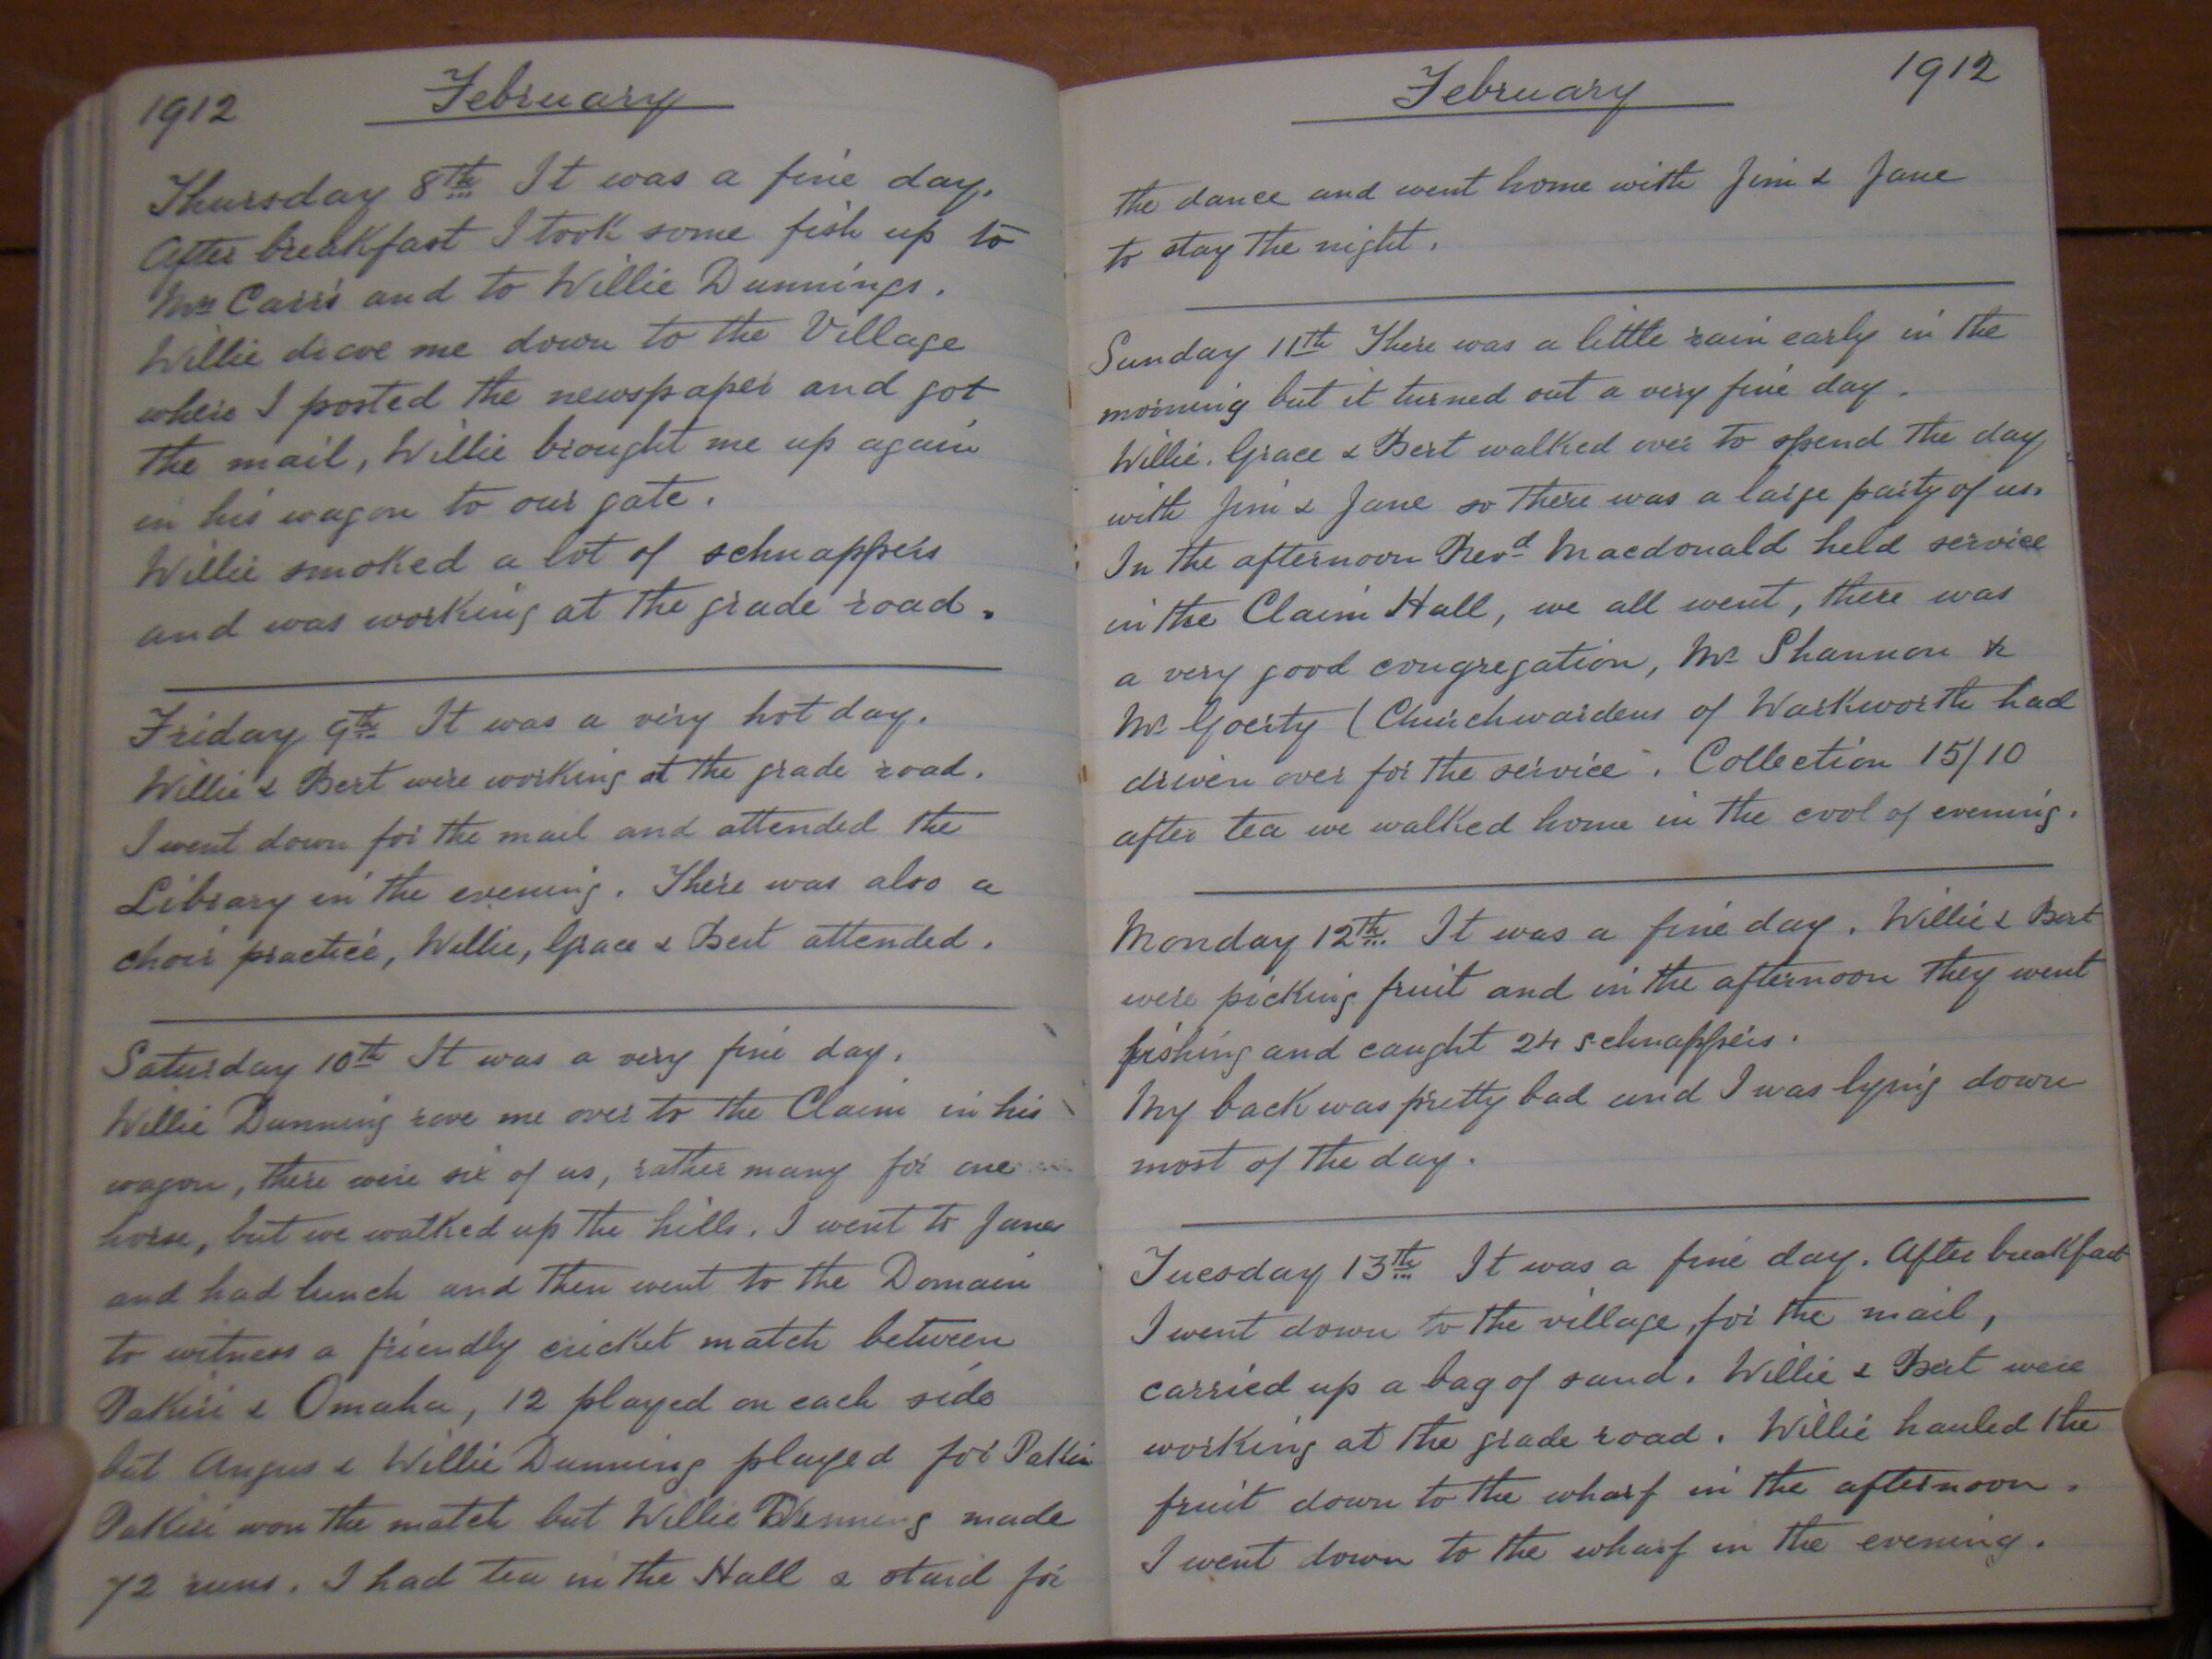 1912 February
Thursday 8th It was a fine day.
After breakfast I took some fish up to
Mrs Carr's and to Willie Dunnings.
Willie drove me down to the Village
where I posted the newspaper and got
the mail, Willie brought me up again
in his wagon to our gate.
Willie smoked a lot of schnappers
and was working at the grade road.
Friday 9th It was a very hot day.
Willie & Bert were working at the grade road.
I went down for the mail and attended the
Library in the evening. There was also a
choir practice, Willie, Grace & Bert attended.
Saturday 10th It was a very fine day.
Willie Dunning rove me over to the Claim in his
wagon, there were six of us, rather many for one
horse, but we walked up the hills. I went to Janes
and had lunch and then went to the Domain
to witness a friendly cricket match between
Pakiri & Omaha, 12 played on each side
but Angus & Willie Dunning played for Pakiri
Pakiri won the match but Willie Dunning made
72 runs. I had tea in the Hall & staid for
February 1912
the dance and went home with Jim & Jane
to stay the night.
Sunday 11th There was a little rain early in the
morning but it turned out a very fine day.
Willie, Grace & Bert walked over to spend the day
with Jim & Jane so there was a large party of us.
In the afternoon Revd Macdonald held service
in the Claim Hall, we all went, there was
a very good congregation, Mr Shannon &
Mr Goerty (Churchwardens of Warkworth had
driven over for the service. Collection 15/10
after tea we walked home in the cool of evening.
Monday 12th It was a fine day. Willie & Bert
were picking fruit and in the afternoon they went
fishing and caught 24 schnappers.
My back was pretty bad and I was lying down
most of the day.
Tuesday 13th It was a fine day. After breakfast
I went down to the village, for the mail,
carried up a bag of sand. Willie & Bert were
working at the grade road. Willie hauled the
fruit down to the wharf in the afternoon.
I went down to the wharf in the evening.